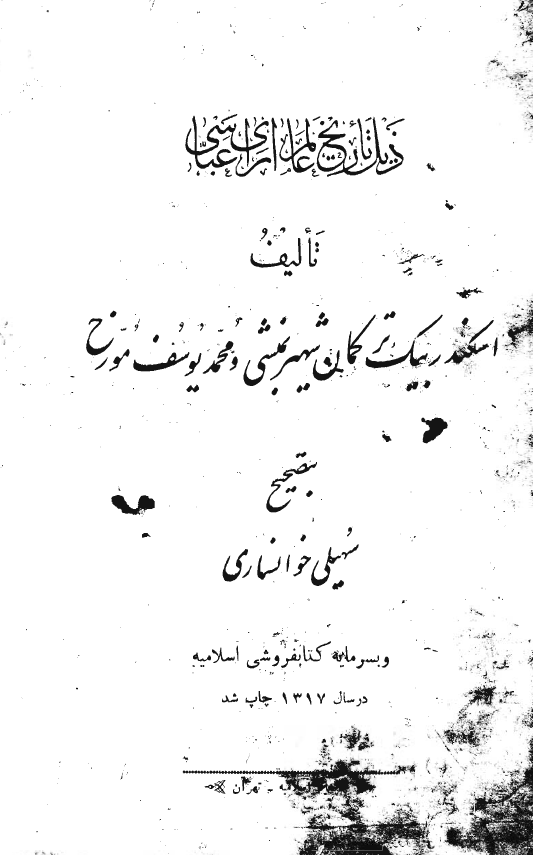 ذیل تاریخ عالم ارای عباسی
تألیف
اسکندر بیک ترکمان شهیر بمنشی و محمد یوسف مورّخ
بتصحیح
سهیلی خوانساری
و بسرمایه کتابفروشی اسلامیه
در سال ۱۳۱۷ چاپ شد
اسلامیه ـ تهران